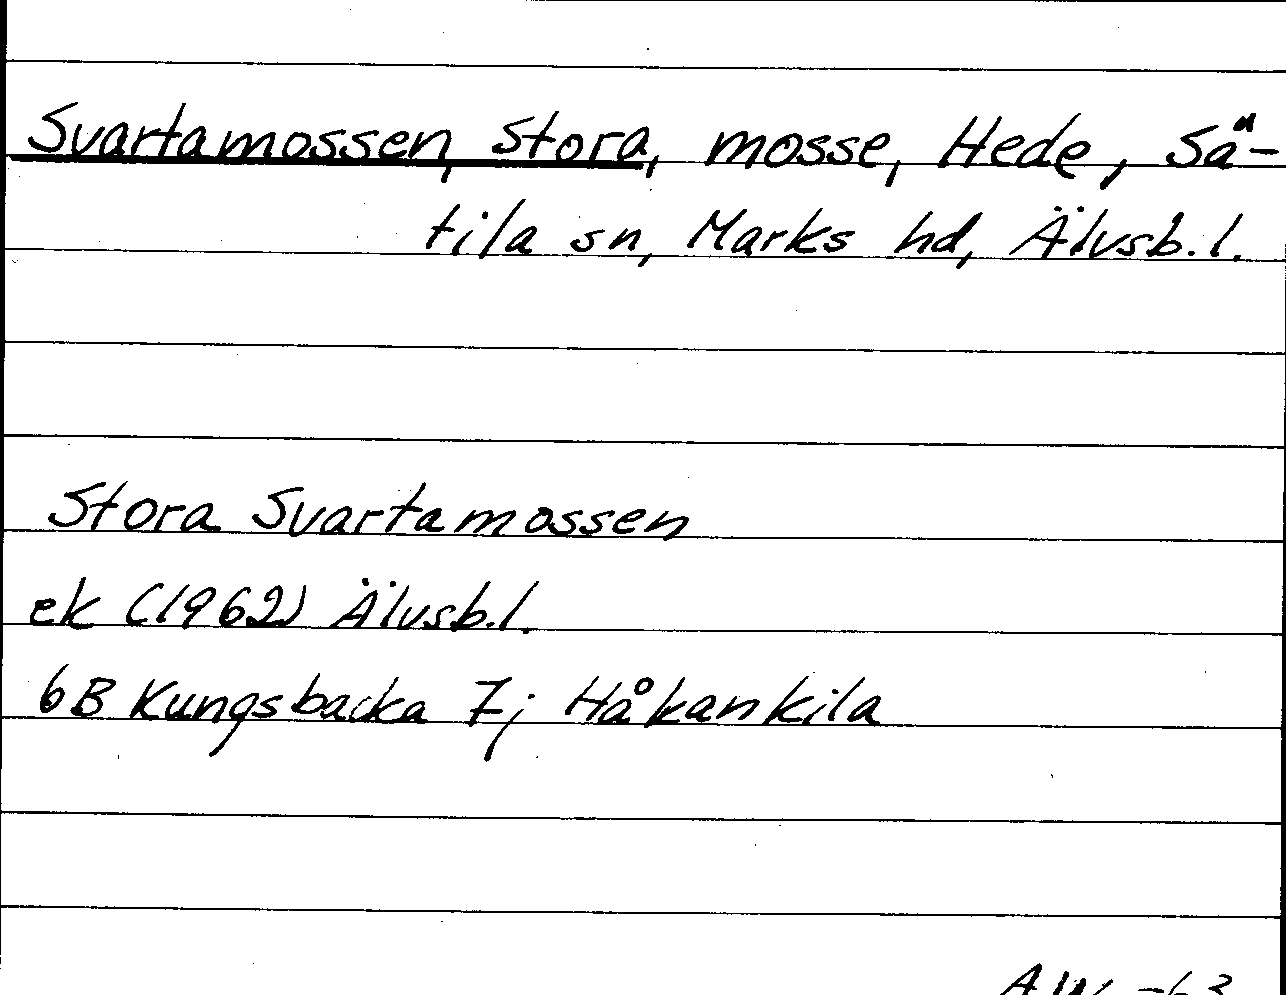 Svartamossen, Stora, mosse, Hede, Sä-
tila sn, Marks hd, Älvsb. l.
Stora Svartamossen
ek (1962) Älvsb. l.
6B Kungsbacka 7j Håkankila